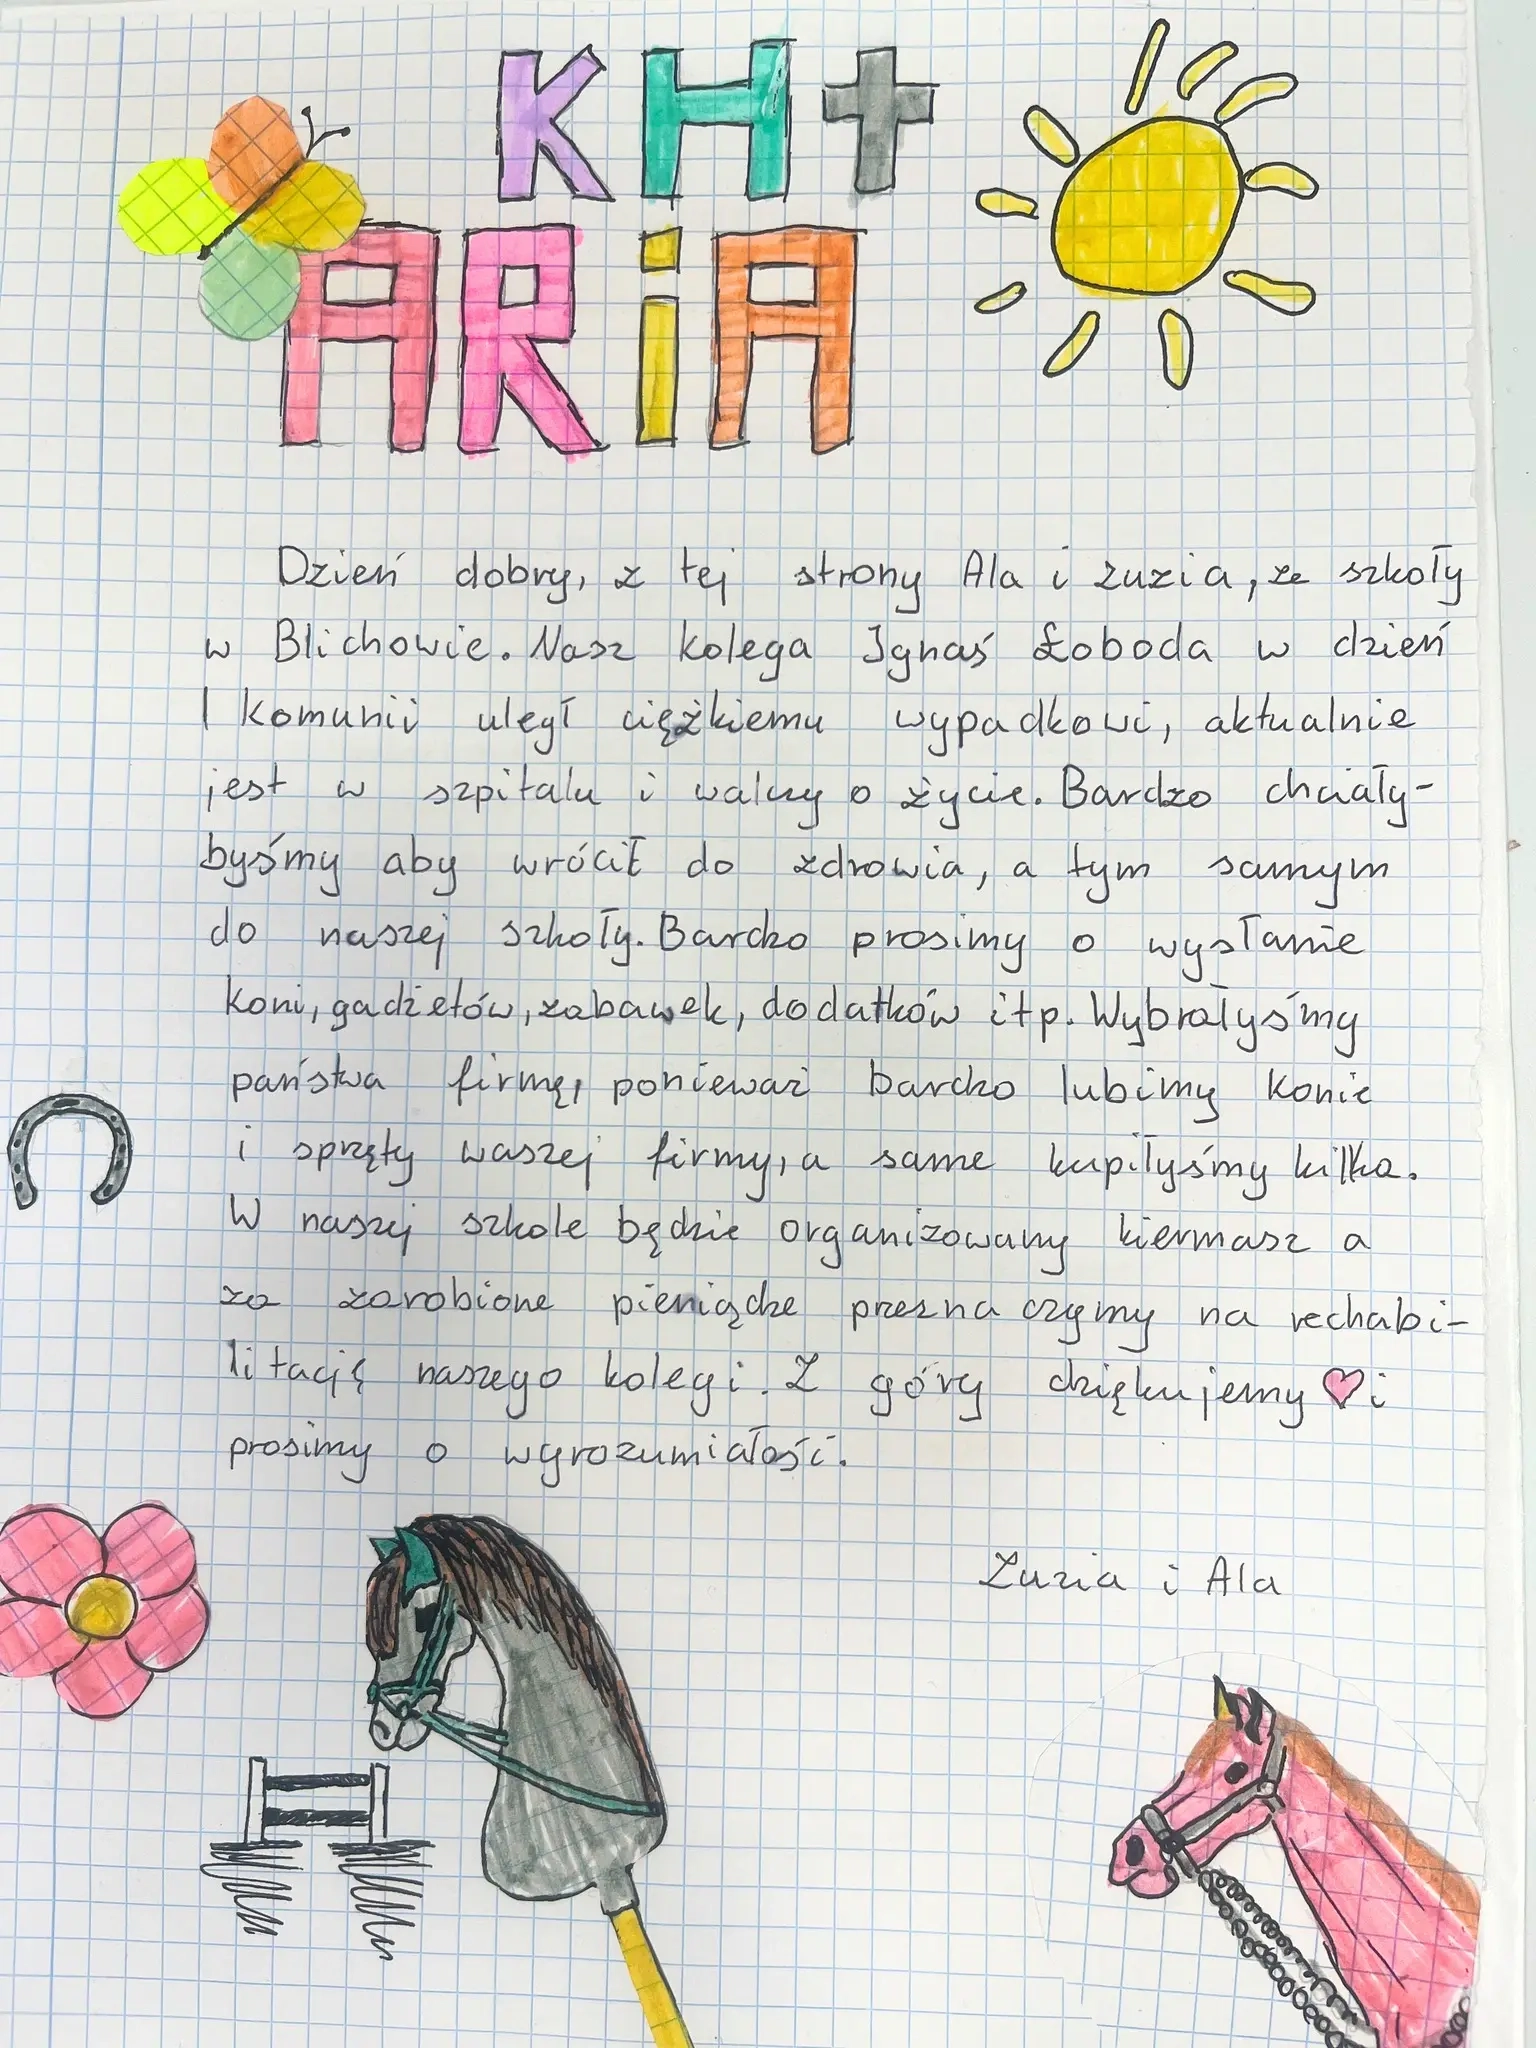 KH+
ARiA
Dzień dobry, z tej strony Ala i Zuzia, ze szkoły
w Blichowie. Nasz kolega Ignaś Łoboda w dzień
I Komunii uległ ciężkiemu wypadkowi, aktualnie
jest w szpitalu i walczy o życie. Bardzo chciały-
byśmy aby wrócił do zdrowia, a tym samym
do naszej szkoły. Bardzo prosimy o wysłanie
koni, gadżetów, zabawek, dodatków itp. Wybrałyśmy
państwa firmę, ponieważ bardzo lubimy konie
i sprzęty waszej firmy, a same kupiłyśmy kilka.
W naszej szkole będzie organizowany kiermasz a
za zarobione pieniądze przeznaczymy na rechabi-
litację naszego kolegi. Z góry dziękujemy ♡ i
prosimy o wyrozumiałość.
Zuzia i Ala